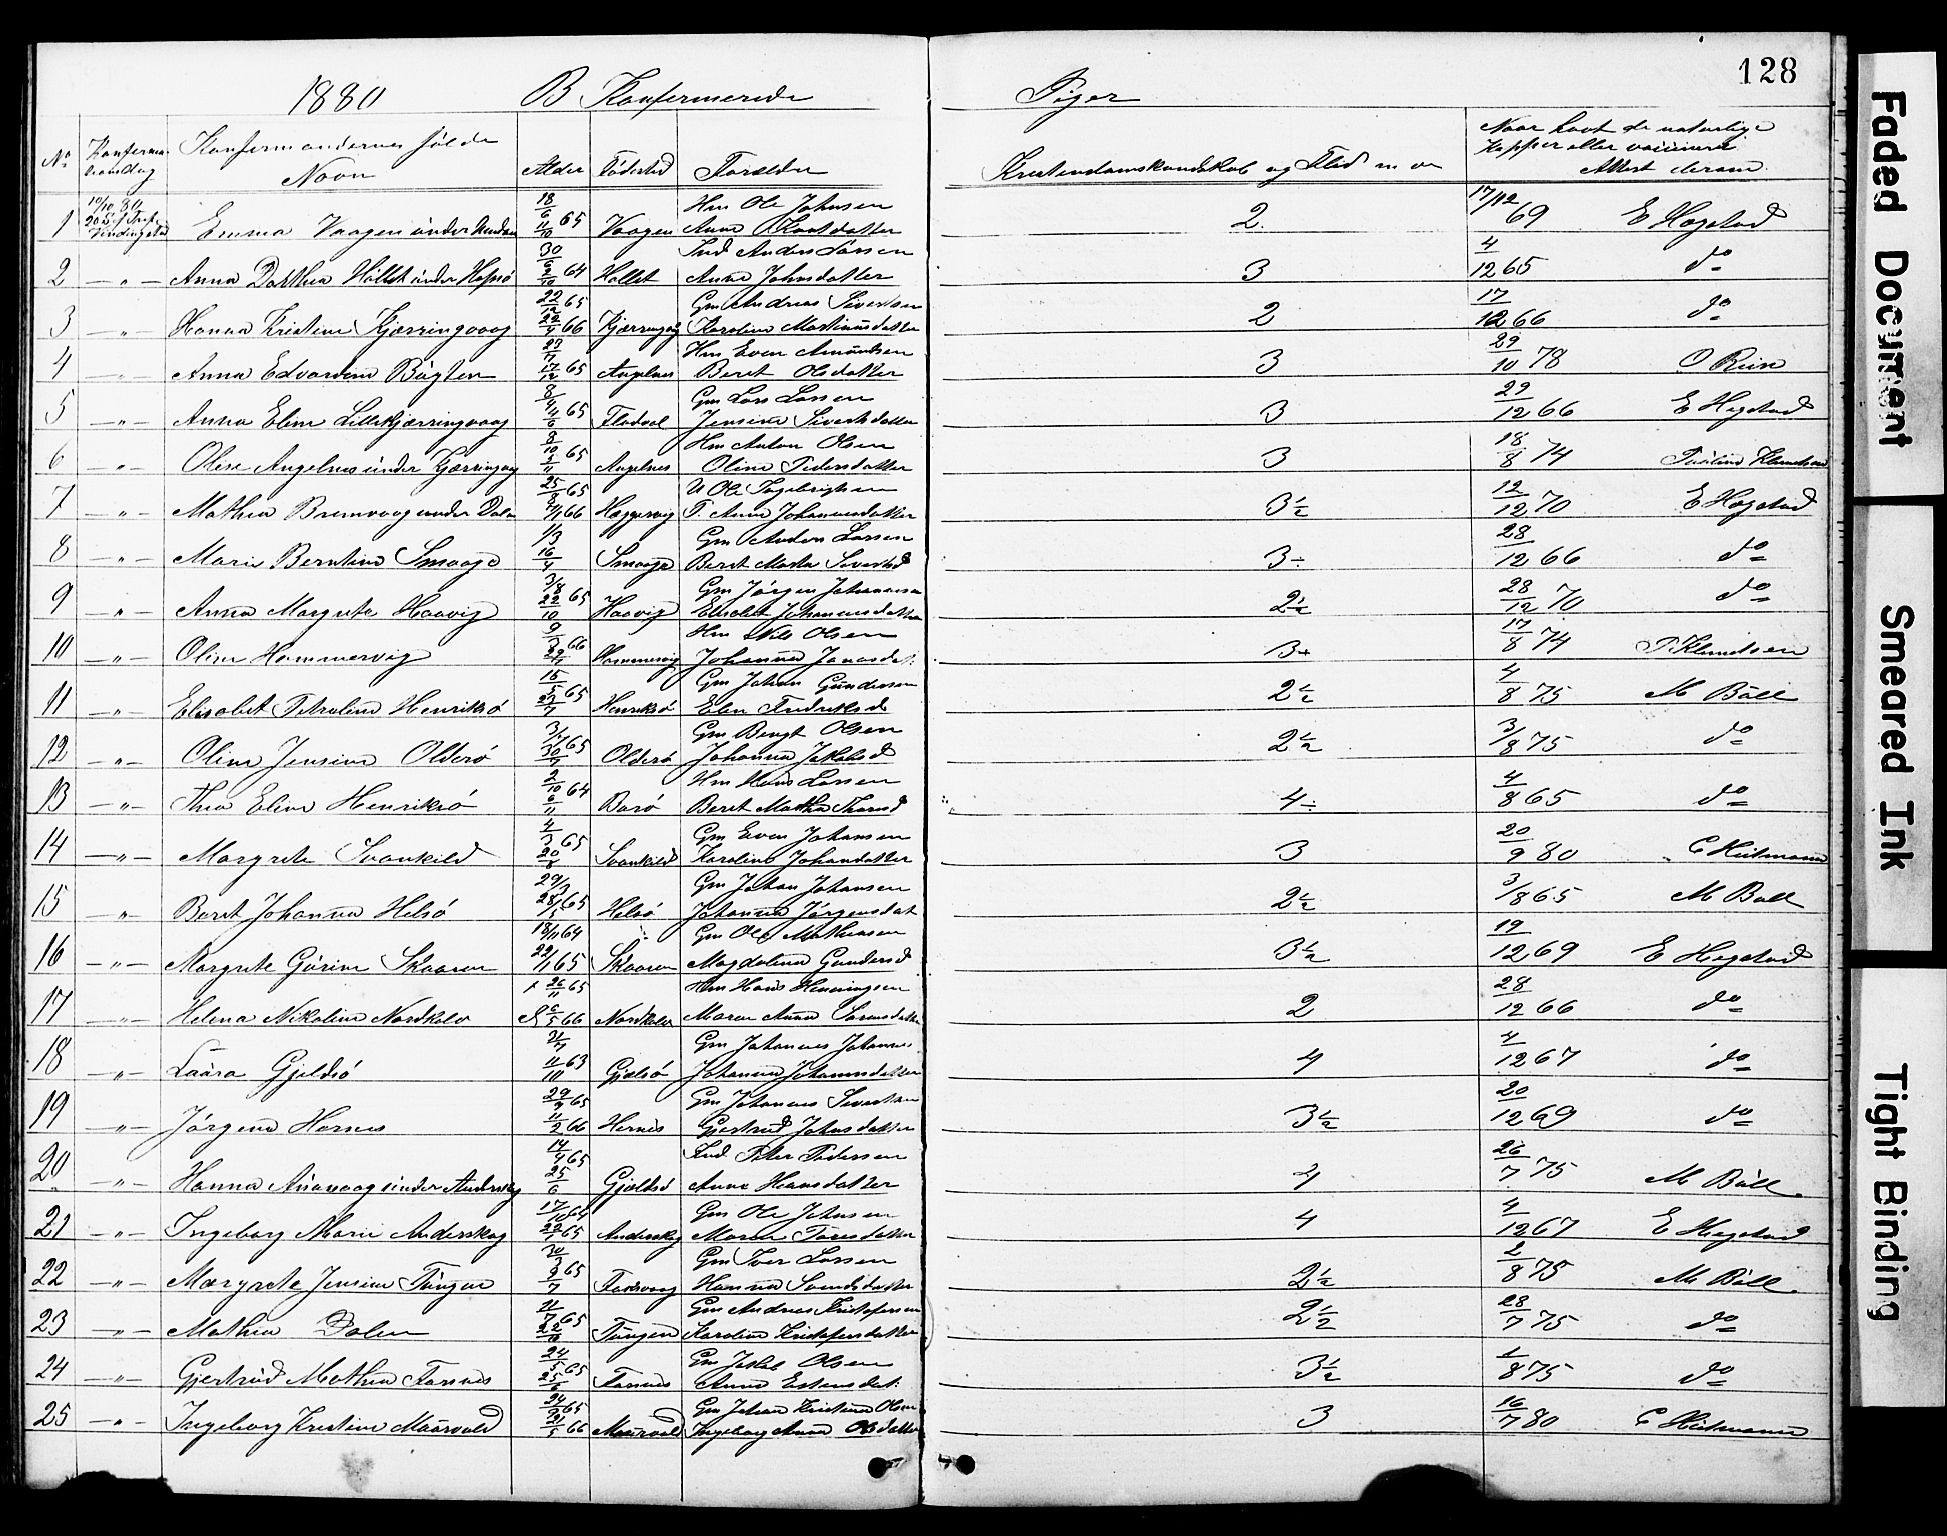 128
1880 B Konfirmerede Piger
No Konfirma- tionsdag Konfirmandernes fulde Navn Alder Fødested Forældre Kristendomskundskab og Flid m m Naar havt de naturlige Kopper eller vaccineret Attest derom
1 10/10 80 Emma Vaagen under 18/6 65 Vaagen Hm Ole Johnsen Anne 2. 17/12 69 E Hegstad
2 — " — Anna Dorthea Hallet under Hopsø 30/6 64 Hallet Ind Anders Larsen Anne Johnsdatter 3 4/12 65 do
3 — " — Hanna Kristine Kjærringvaag 22/12 65 22/4 66 Kjærringvg Gm Andreas Sivertsen Karoline Martinusdatter 2 17/12 66 do
4 — " — Anna Edvardine Bugten 65 Angelnes Hm Even Amundsen Beret Olsdatter 3 29/10 78 O Riin
5 — " — Anna Eline Lillekjærringvaag 65 Flodval Gm Lars Larsen Jensine Sivertsdatter 3 29/12 66 E Hegstad
6 — " — Oline Angelnes under Kjærringvg 8/10 65 Angelnes Hm Anton Olsen Oline Pedersdatter 3 18/8 74 Klemetsen
7 — " — Mathea Bremvaag under Dale 65 66 Heggervig U Ole Ingebrigtsen F. Anne Johannesdatter 3½ 12/12 70 E Hegstad
8 — " — Marie Berntine Smaage 1/3 16/4 Smaage Gm Anders Larsen Beret Marta Sivertsd 3÷ 28/12 66 do
9 — " — Anna Margrete Haavig 3/8 65 22/10 Haavig Gm Jørgen Johannessen Elisabet Johannesdatter 2½ 28/12 70 do
10 — " — Oline Hammervig 9/3 66 Hammervig Hm Nils Olsen Johanna Jonasdat. 3+ 17/8 74 P. Klemetsen
11 — " — Elisabet Petroline Henriksø 15/5 65 Henriksø Gm Johan Gundersen Elen Fredriksd 2½ 4/8 75 M Bull
12 — " — Oline Jensine Olderø 65 Olderø Gm Bengt Olsen Johanna Jakobsd 2½ 3/8 75 do
13 — " — Thea Eline Henriksø 2/10 64 6/11 Burø Hm Hans Larsen Beret Martha 4÷ 4/8 65 do
14 — " — Margrete Svankild 4/3 65 20/8 Svankild Gm Even Johansen Karoline Johandatter 3 20/9 80 C Heitmann
15 — " — Beret Johanna Helsø 29/3 28/5 65 Helsø Gm Johan Johansen Johanna Jørgensdat 2½ 3/8 65 M Bull
16 — " — Margrete Gurine Skaaren 18/11 64 22/1 65 Skaaren Gm Ole Mathiasen Magdalena Gundersd 3½ 19/12 69 E Hegstad
17 — " — Helena Nikoline Nordkalv 26/11 65 6/5 66 Nordkalv Hm Hans Henningsen Maren Anne Sørensdatter 2 28/12 66 do
18 — " — Laura Gjeldsø 63 Gjelsø Gm Johannes Johannes Johanna Johannesdatter 4 4/12 67 do
19 — " — Jørgine Hernes 29/9 65 11/2 66 Hernes Gm Johannes Sivertsen Gjertrud Johnsdatter 3½ 20/12 69 do
20 — " — Hanna Aunvaag under Anderskog 14/4 65 25/6 Gjeldsø Ind Peter Pedersen Anne Hansdatter 4 26/7 75 M Bull
21 — " — Ingeborg Marie Anderskog 17/10 64 22/1 65 Anderskg Gm Ole Johnsen Maren Toresdatter 4 4/12 67 E Hegstad
22 — " — Margrete Jensine Tungen 65 Gm Iver Larsen Hanna 2½ 2/8 75 M Bull
23 — " — Mathea Dalen 65 Tungen Gm Andreas Kristofersen Karoline Kristofersdatter 2½ 28/7 75 do
24 — " — Gjertrud Mathea Forsnes 24/5 65 25/6 Forsnes Gm Jakob Olsen Anna Estensdat. 3½ 1/8 75 do
25 — " — Ingeborg Kristine Maursund 65 21/5 66 Maursund Gm Johan Kristian Olsen Ingeborg Anna Olsdatter 3 16/7 80 C Heitmann
Faded Document
Smeared Ink
Tight Binding